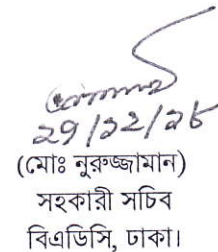 ২৭/১২/১৮
(মোঃ নুরুজ্জামান)
সহকারী সচিব
বিএডিসি, ঢাকা।